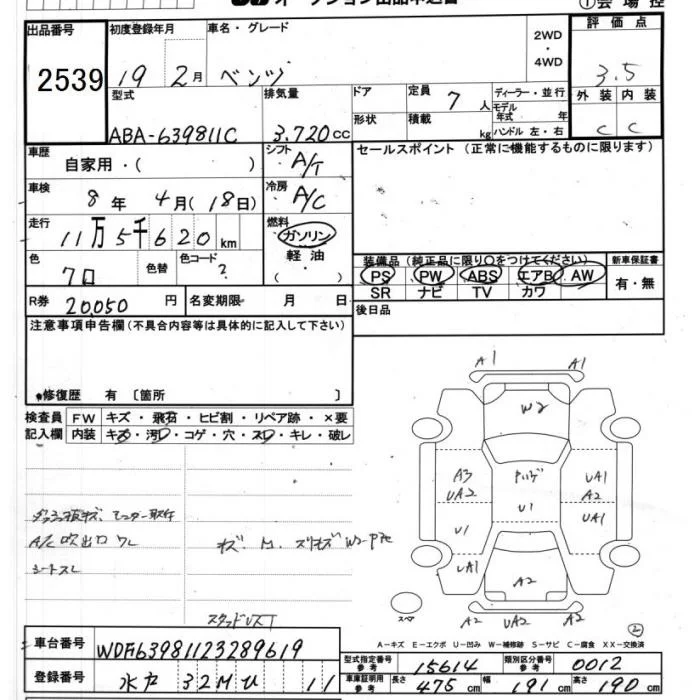 ①会場控
出品番号 2539
初度登録年月 19 2月
車名・グレード ベンツ
2WD・4WD
評価点 3.5
型式 ABA-639811C
排気量 3,720cc
ドア
形状
定員 7人
積載 kg
ディーラー・並行
モデル年式 年
ハンドル 左・右
外装 C
内装 C
車歴 自家用・( )
シフト A/T
セールスポイント (正常に機能するものに限ります)
車検 8年 4月(18日)
冷房 A/C
走行 11万5千620km
燃料 ガソリン・軽油
色 クロ
色替
色コード ?
装備品 (純正品に限り○をつけてください)
新車保証書 有・無
PS PW ABS エアB AW
SR ナビ TV カワ
R券 20,050円
名変期限 月 日
後日品
注意事項申告欄(不具合内容等は具体的に記入して下さい)
修復歴 有 〔箇所 〕
検査員記入欄
FW キズ・飛石・ヒビ割・リペア跡・×要
内装 キズ・汚レ・コゲ・穴・スレ・キレ・破レ
A/C吹出口ワレ
シートスレ
A1 A1
W2
A3
UA2
UA1
A2
U1
U1
UA1
UA1
A2
スペア
A2 UA2 A2
②
A-キズ E-エクボ U-凹み W-補修跡 S-サビ C-腐食 XX-交換済
車台番号 WDF63981123289619
登録番号 水戸 32M ひ 11
型式指定番号参考 15614
類別区分番号参考 0012
車庫証明用参考 長さ 475cm 幅 191cm 高さ 190cm